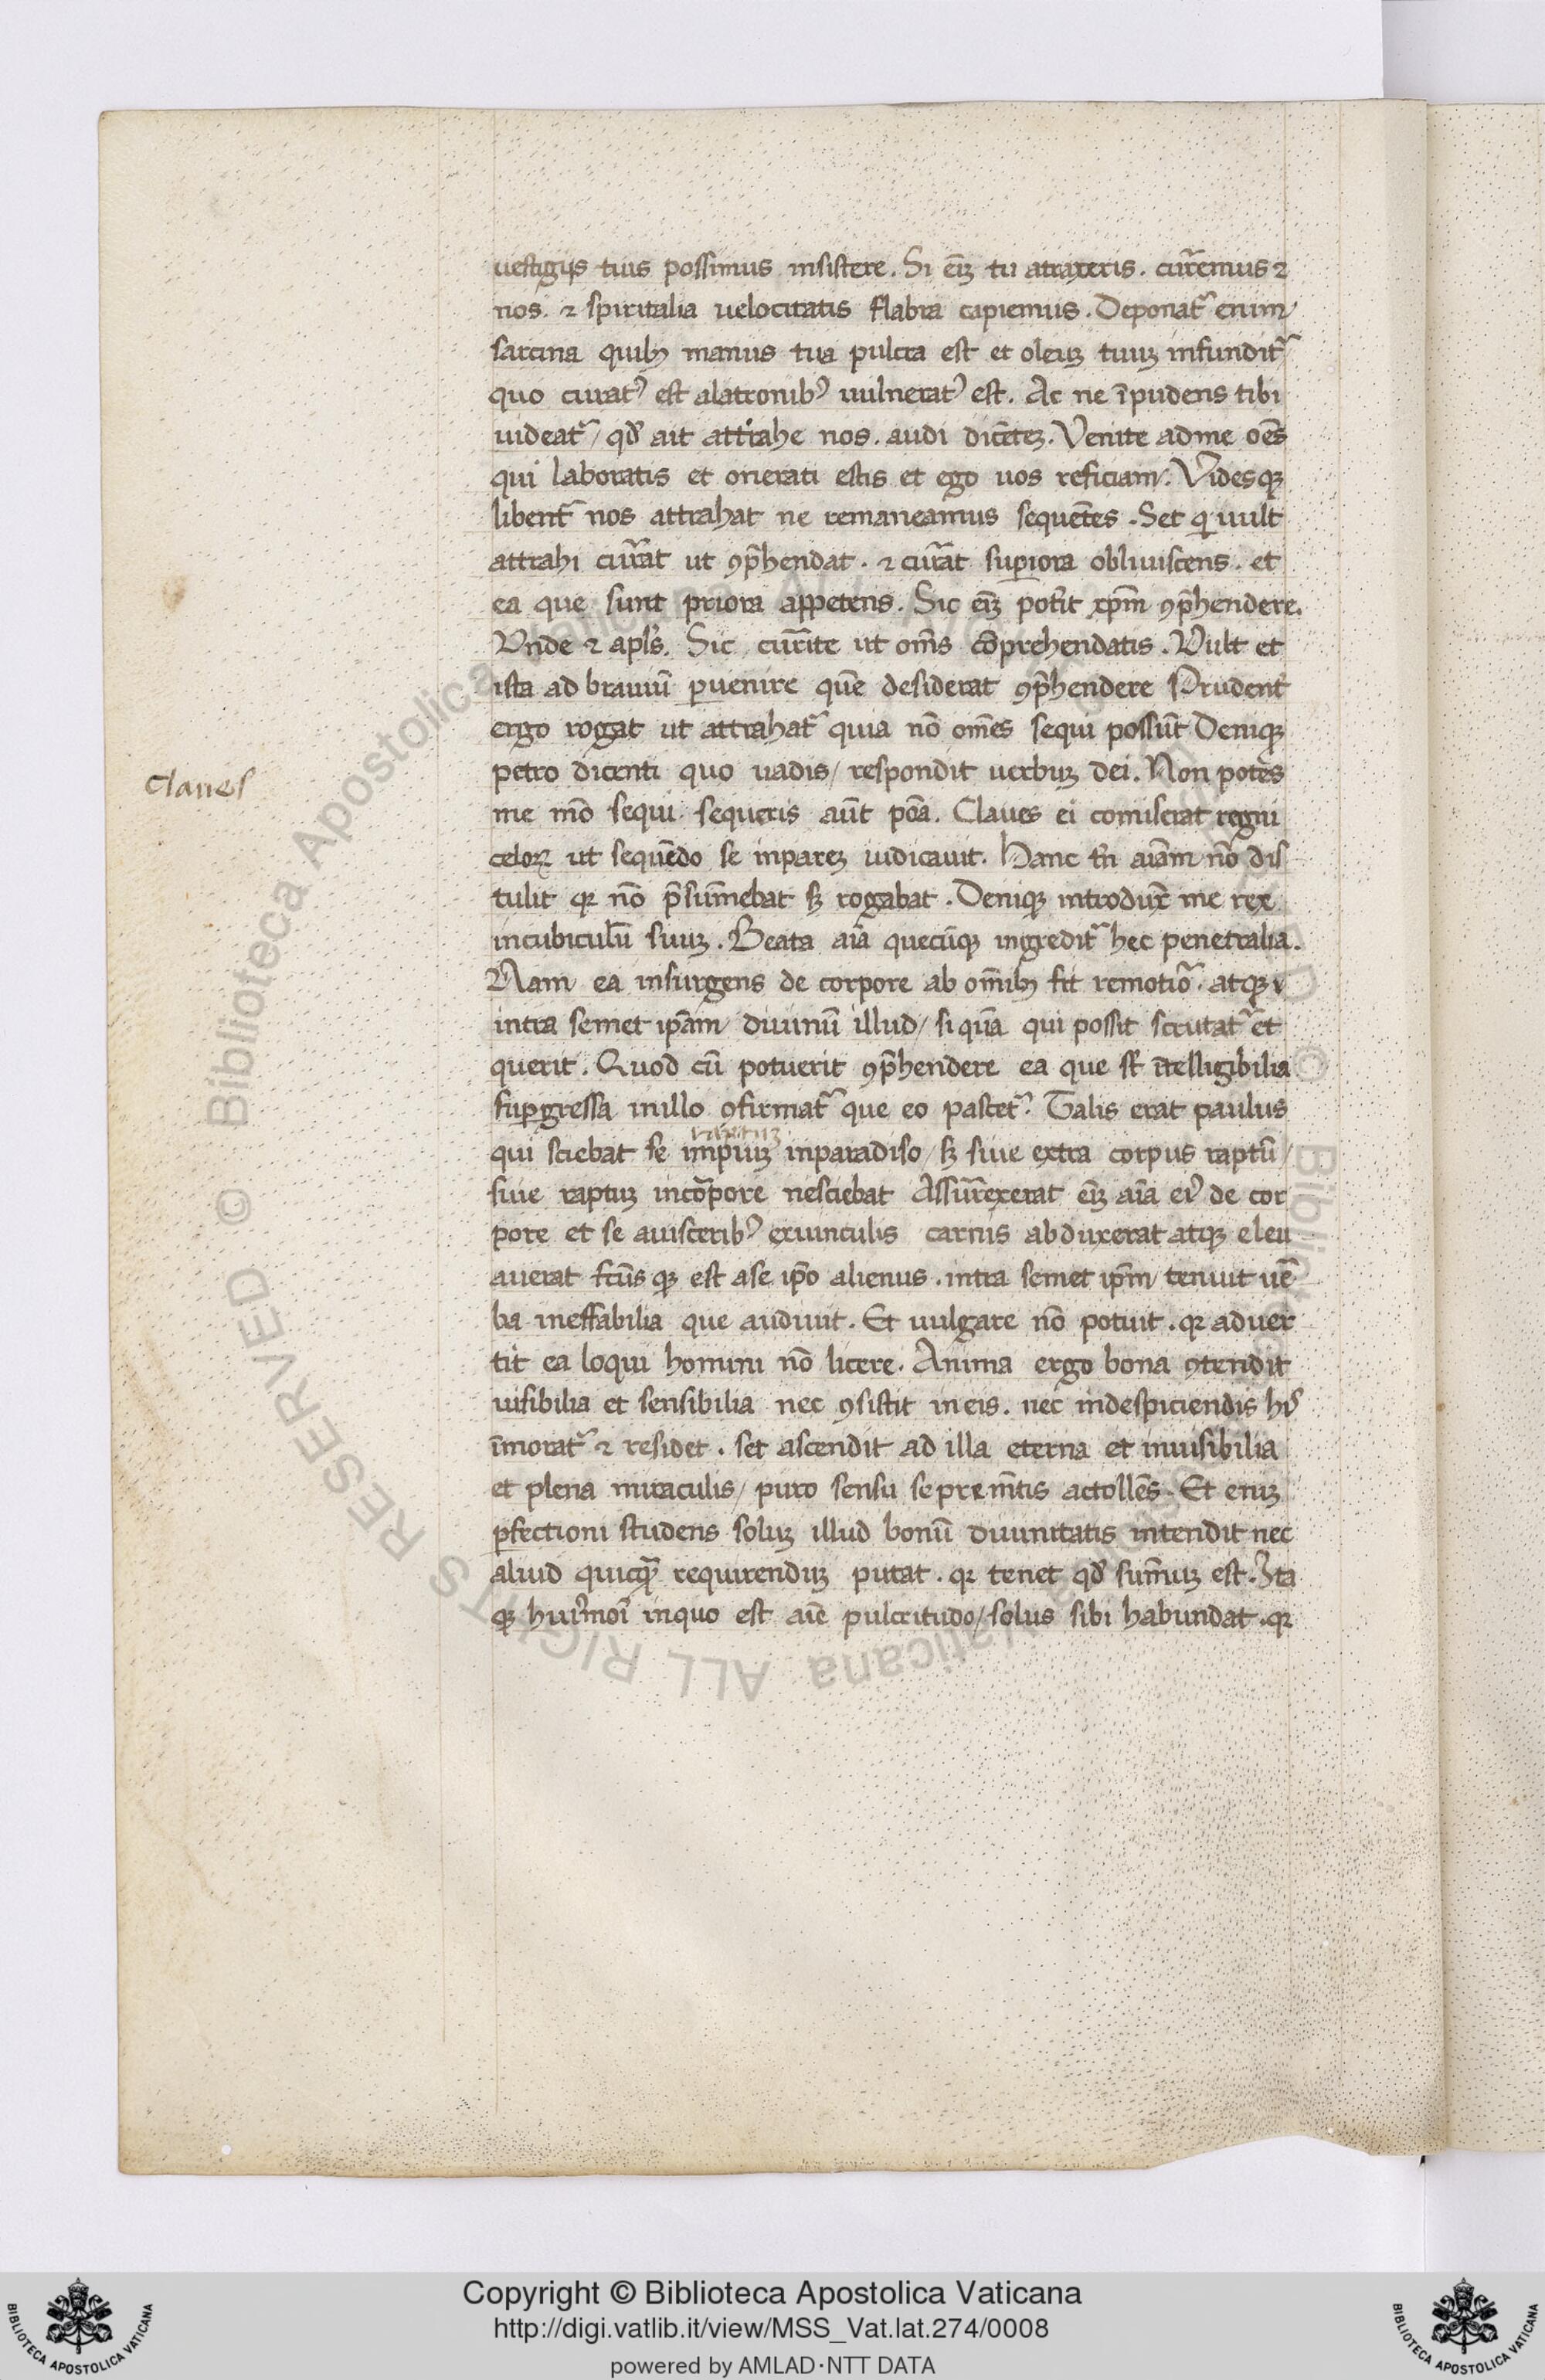 uestigijs tuis possimus insistere. Si eīz tu atraxeris. curr̄emus ⁊
nos. ⁊ spiritalia uelocitatis flabra capiemus. Deponat᷑ enim
sarcina quibꝫ manus tua pulcra est et oleuz tuuz infundit᷑
quo curatꝰ est alatronibꝰ uulneratꝰ est. Ac ne īpudens tibi
uideat᷑/ qđ ait attrahe nos. audi dicētez. Venite adme oēs
qui laboratis et onerati estis et ego uos reficiam. Videsqꝫ
libent̄ nos attrahat ne remaneamus sequētes. Set qi uult
attrahi curr̄at ut ꝯp̄hendat. ⁊ curr̄at suꝑiora obliuiscens. et
ea que sunt priora appetens. Sic eīz pot̄it xp̄m ꝯp̄hendere.
Vnde ⁊ apl̄s. Sic curr̄ite ut om̄s cōprehendatis. Vult et
ista ad brauiū ꝑuenire quē desiderat ꝯp̄hendere Prudent̄
ergo rogat ut attrahat᷑ quia nō om̄es sequi possūt Deniqꝫ
petro dicenti quo uadis/ respondit uerbuz dei. Non potes
me mō sequi. sequeris aūt poā. Claues ei comiserat regni
celoꝝ ut sequēdo se inparez iudicauit. Hanc tn̄ aīam nō dis
tulit qꝛ nō p̄sum̄ebat sꝫ rogabat. Deniqꝫ introdux̄ me rex
incubiculū suuz. Beata aīa quecūqꝫ ingredit᷑ hec penetralia.
Nam ea insurgens de corpore ab om̄ibꝫ fit remotio᷑. atqꝫ
intra semet ip̄am/ diuinū illud/ si quā qui possit scrutat᷑ et
querit. Quod cū potuerit ꝯp̄hendere ea que st̄ ītelligibilia
suꝑgressa inillo ꝯfirmat᷑ que eo pascet᷑. Talis erat paulus
raptuz
qui sciebat se impiuz inparadiso/ sꝫ siue extra corpus raptū/
siue raptuz incorpore nesciebat Assurr̄exerat eīz aīa eiꝰ de cor
pore et se auisceribꝰ exuinculis carnis abduxerat atqꝫ eleu
auerat fcūs qꝫ est ase ip̄o alienus. intra semet ip̄m/ tenuit uē
ba ineffabilia que audiuit. Et uulgare nō potuit. qꝛ aduer
tit ea loqui homini nō licere. Anima ergo bona ꝯtendit
uisibilia et sensibilia nec ꝯsistit in eis. nec indespiciendis hiꝰ
īmorat᷑ ⁊ residet. set ascendit ad illa eterna et inuisibilia
et plena miraculis/ puro sensu se pre m̄tis actollēs. Et enīz
ꝑfectioni studens soluz illud bonū diuinitatis intendit nec
aliud quicqꝫ requirenduz putat. qꝛ tenet qđ sum̄uz est. Ita
qꝫ huiꝰmoī inquo est aīe pulcritudo/ solus sibi habundat. qꝛ
claues
Copyright © Biblioteca Apostolica Vaticana
http://digi.vatlib.it/view/MSS_Vat.lat.274/0008
powered by AMLAD·NTT DATA
BIBLIOTECA APOSTOLICA VATICANA
BIBLIOTECA APOSTOLICA VATICANA
© Biblioteca Apostolica Vaticana ALL RIGHTS RESERVED